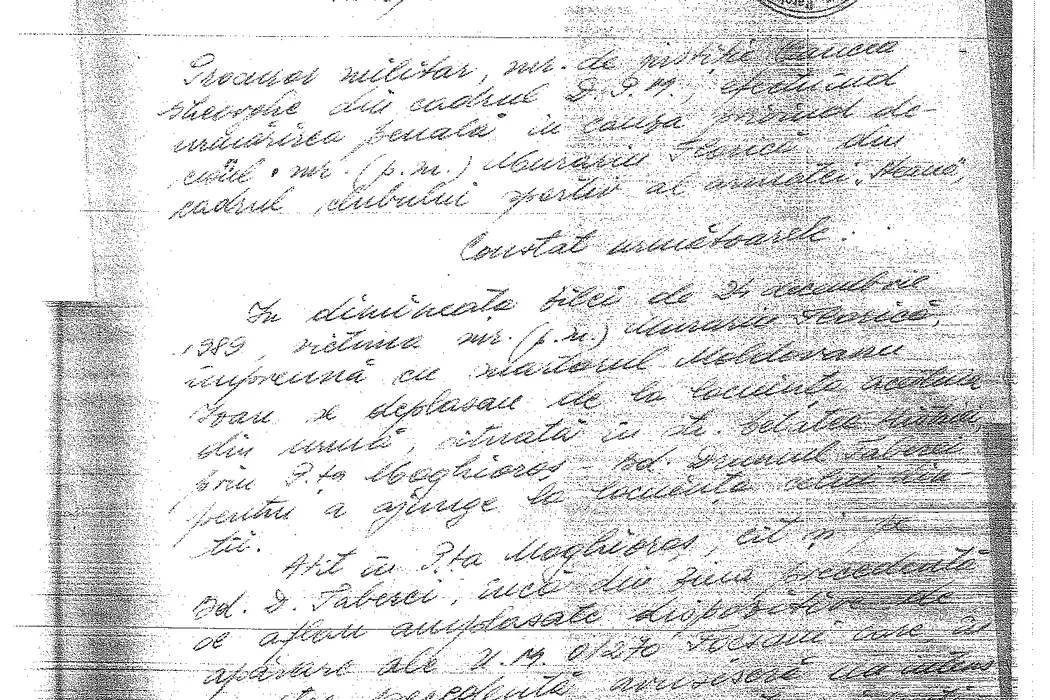 Procuror militar, mr. de justiție Canciu
Gheorghe din cadrul D.P.M., efectuînd
urmărirea penală în cauza privind de-
cesul mr. (p.m.) Murariu Florică din
cadrul clubului sportiv al armatei „Steaua”,
Constat următoarele:
În dimineața zilei de 24 decembrie
1989, victima mr. (p.m.) Murariu Florică,
împreună cu martorul Moldoveanu
Ioan se deplasau de la locuința acestuia
din urmă, situată în str. Cetatea Histria,
prin P-ța Moghioroș - Bd. Drumul Taberei
pentru a ajunge la locuința celui
Atît în P-ța Moghioroș, cît și pe
Bd. D. Taberei, încă din ziua precedentă
se aflau amplasate dispozitive de
apărare ale U.M. 01270 Focșani care în
precedentă avuseseră un